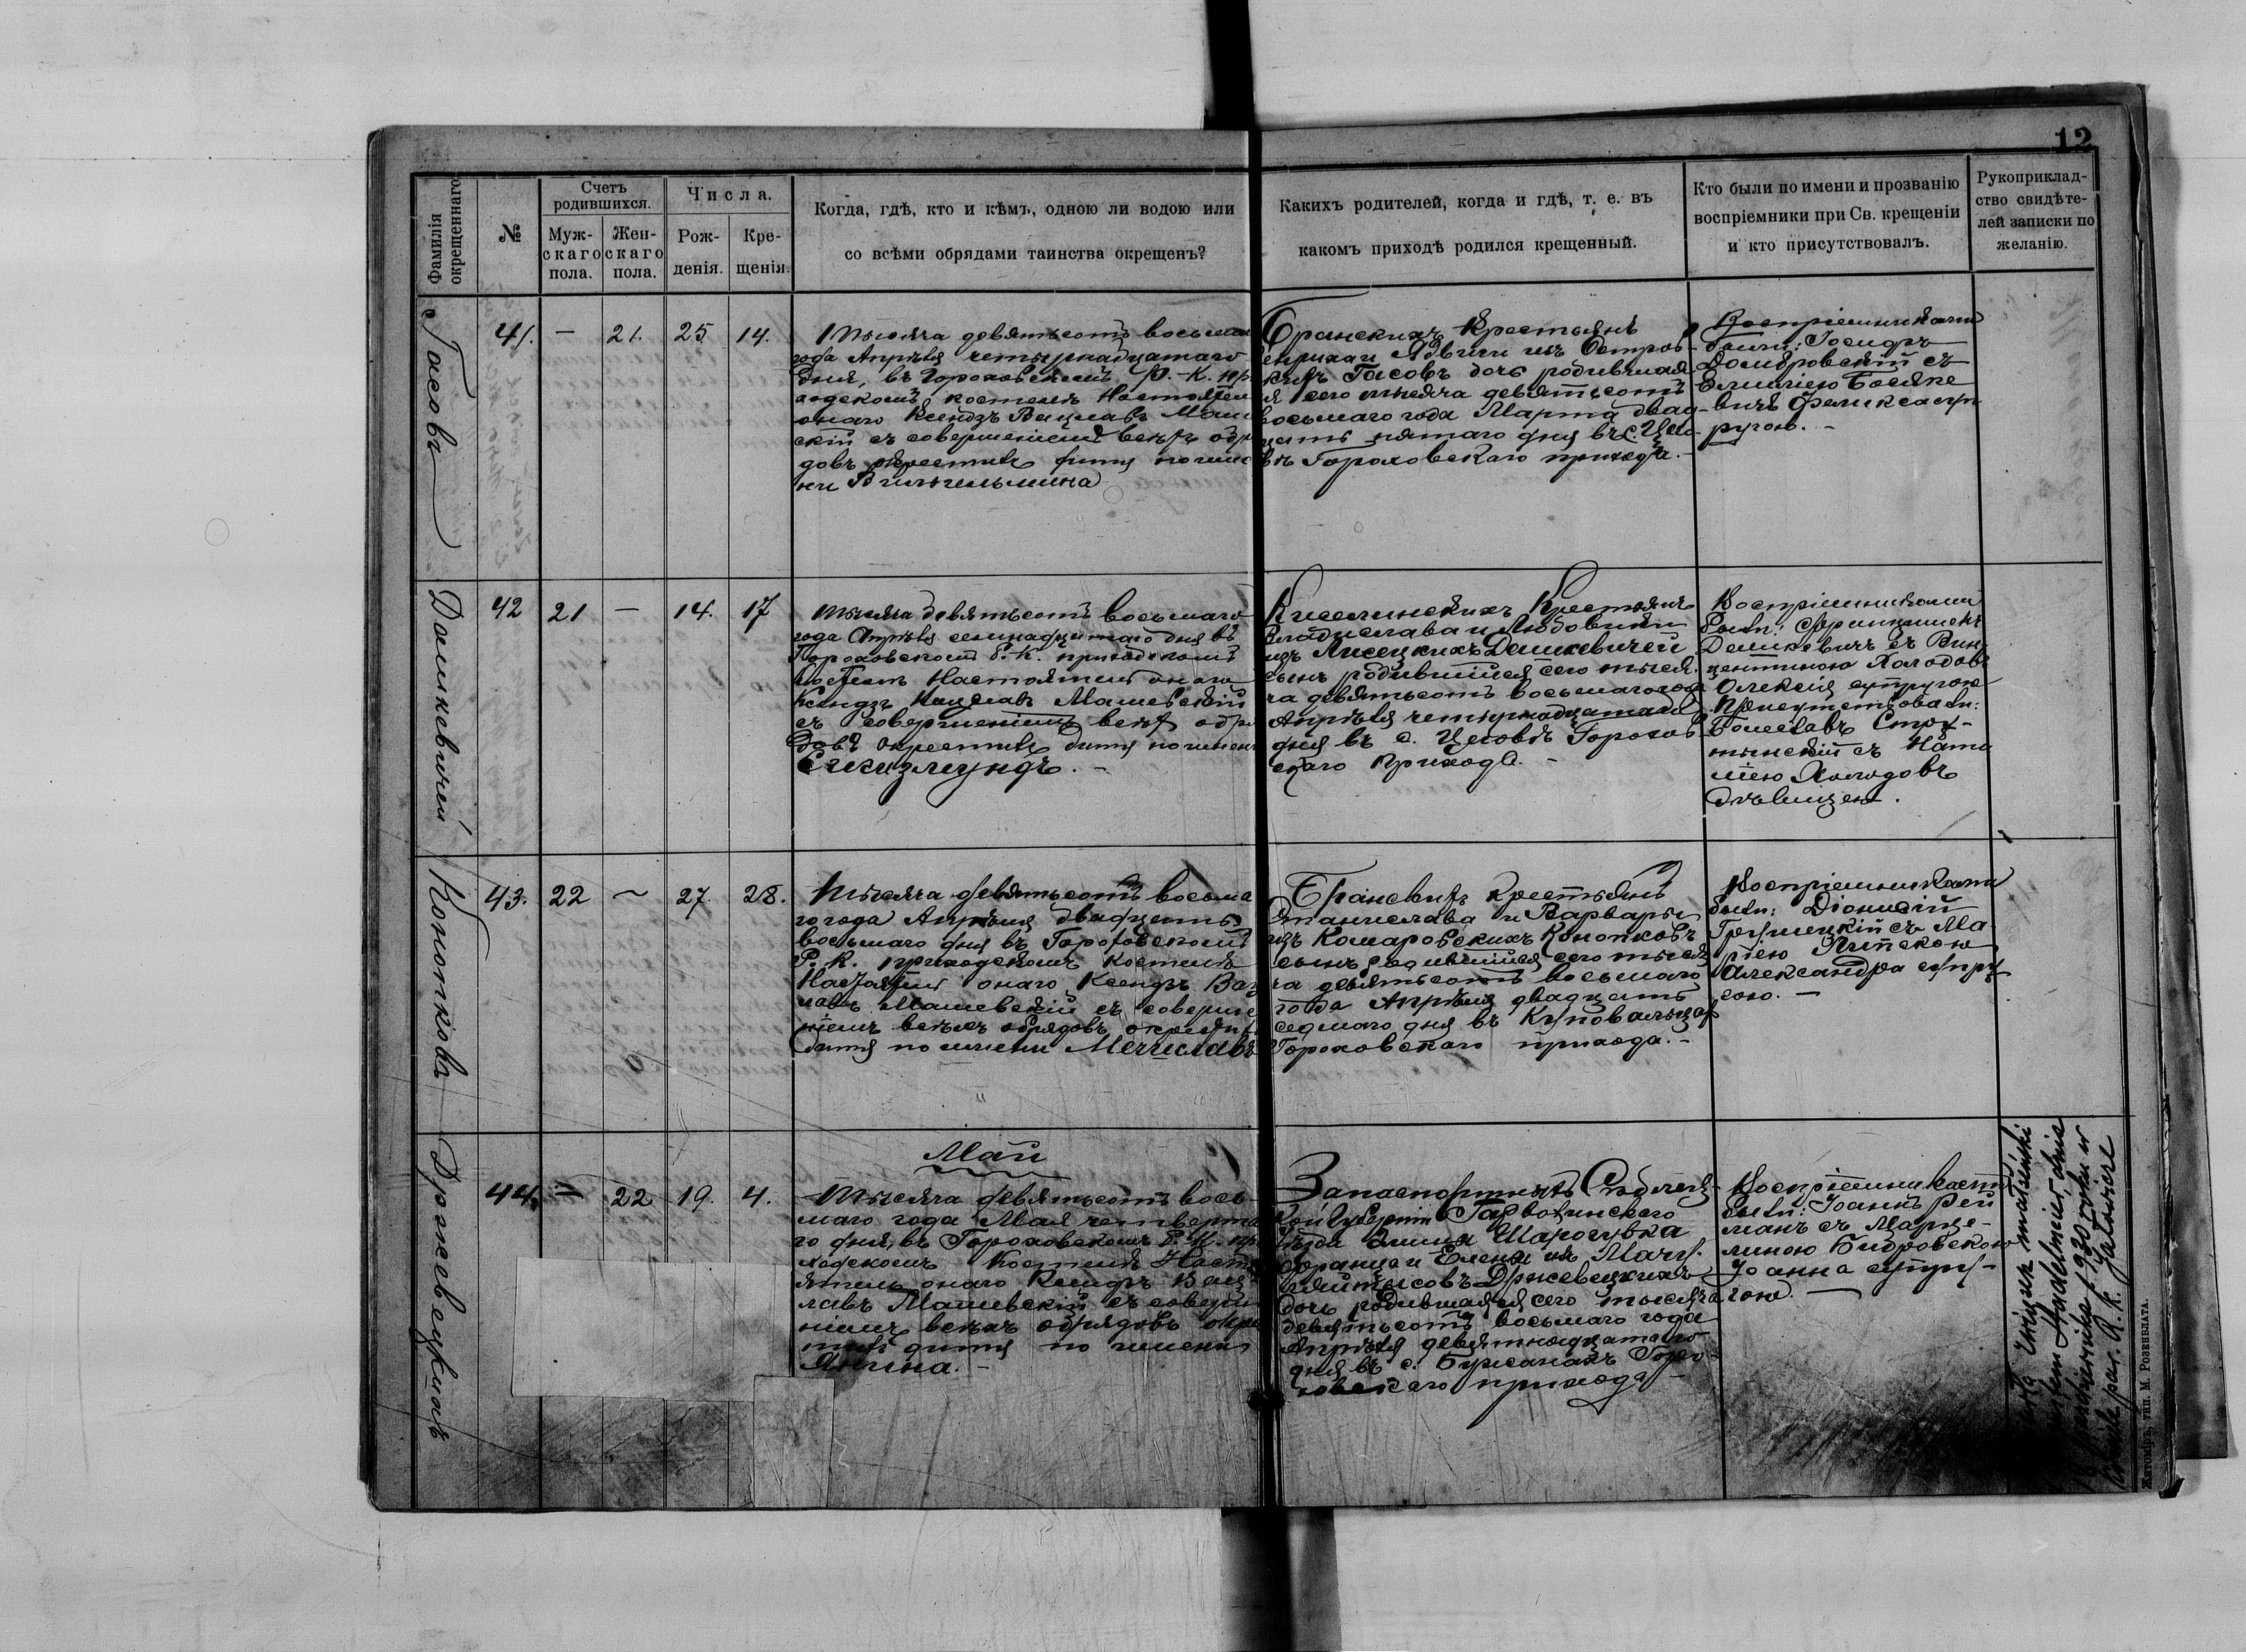 12
Фамилія окрещеннаго
№
Счетъ родившихся.
Мужскаго пола.
Женскаго пола.
Числа.
Рожденія.
Крещенія.
Когда, гдѣ, кто и кѣмъ, одною ли водою или
со всѣми обрядами таинства окрещенъ?
Какихъ родителей, когда и гдѣ, т. е. въ
какомъ приходѣ родился крещенный.
Кто были по имени и прозванію
воспріемники при Св. крещеніи
и кто присутствовалъ.
Рукоприклад-
ство свидѣте-
лей записки по
желанію.
Гасовъ
41. — 21. 25 14.
Тысяча девятьсотъ восьмаго
года Апрѣля четырнадцатаго
дня, въ Гороховскомъ Р.-К. при
ходскомъ костелѣ Настоятель
онаго Ксендзъ Вацлавъ Маше
скій съ совершеніемъ всѣхъ обря
довъ окрестилъ дитя по име
ни Вильгельмина
Бранскихъ Крестьянъ
Генриха и Ядвиги изъ Остров-
кихъ Гасовъ дочь родившая-
я сего тысяча девятьсотъ
восьмаго года Марта двад-
цать пятаго дня въ с. Цего-
вѣ Гороховскаго прихода. -
Воспріемниками
были: Іосифъ
Домбровскій съ
Эмиліею
Феликса суп
ругою. -
Дашкевичей
42 21 — 14. 17
Тысяча девятьсотъ восьмаго
года Апрѣля семнадцатаго дня въ
Гороховскомъ Р. К. приходскомъ
костелѣ Настоятель онаго
Ксендзъ Вацлавъ Машевскій
съ совершеніемъ всѣхъ обря
довъ окрестилъ дитя по имени
Сигизмундъ. -
Киселинскихъ Крестьянъ
Владислава и Людовики
изъ Лисецкихъ Дашкевичей
сынъ родившійся сего тыся
ча девятьсотъ восьмаго года
Апрѣля четырнадцатаго
дня въ с. Цеговѣ Горохов
скаго прихода. -
Воспріемниками
были: Францишекъ
Дашкевичъ съ Вин
центиною Холодовъ
Олексія супругою
Присутствовали:
Болеславъ Стру-
тынскій съ Ната
ліею Холодовъ
дѣвицею.
Конопковъ
43. 22 ~ 27. 28.
Тысяча девятьсотъ восьма
го года Апрѣля двадцать
восьмаго дня въ Гороховскомъ
Р. К. приходскомъ костелѣ
Настоятель онаго Ксендзъ Вац
лавъ Машевскій съ соверше
ніемъ всѣхъ обрядовъ окрестилъ
дитя по имени Мечиславъ
Бранскихъ крестьянъ
Станислава и Варвары
изъ Комаровскихъ Конопковъ
сынъ родившійся сего тыся
ча девятьсотъ восьмаго
года Апрѣля двадцать
седмаго дня въ Куповальцах
Гороховскаго прихода. -
Воспріемниками
были: Діонисій
съ Ма
ріею
Александра супру
гою. -
Држевецкихъ
44. = 22 19. 4.
Май
Тысяча девятьсотъ вось
маго года Мая четверта
го дня, въ Гороховскомъ Р. К. при
ходскомъ Костелѣ Насто
ятель онаго Ксендзъ Вац
лавъ Машевскій съ соверше
ніемъ всѣхъ обрядовъ окре
стилъ дитя по имени
Янина. -
Запаспортныхъ Сѣдлец-
кой губерніи Гарволинскаго
уѣзда гмины
Франца и Елены изъ
Држевецкихъ
дочь родившаяся сего тысяча
девятьсотъ восьмаго года
Апрѣля девятнадцатаго
дня въ с. Бужанахъ Горо-
ховскаго прихода -
Воспріемниками
были: Іоаннъ Рей
манъ съ Марце-
линою Бидровскою
Іоанна супру-
гою. —
związek małżeński
dnia
1930 roku w
par. R. K.
Житоміръ, тип. М. Розенблата.